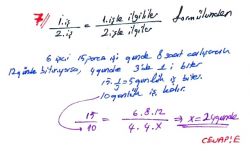 7/ 1.iş / 2.iş = 1.işle ilgililer / 2.işle ilgililer formülünden
6 işçi 15 parça işi günde 8 saat çalışarak
12 günde bitiriyorsa, 4 günde 3'de 1 i biter
15.1/3=5 günlük iş biter.
10 günlük iş kalır.
15/10 = 6.8.12/4.4.X ⇒ x=24 gün
CEVAP:E